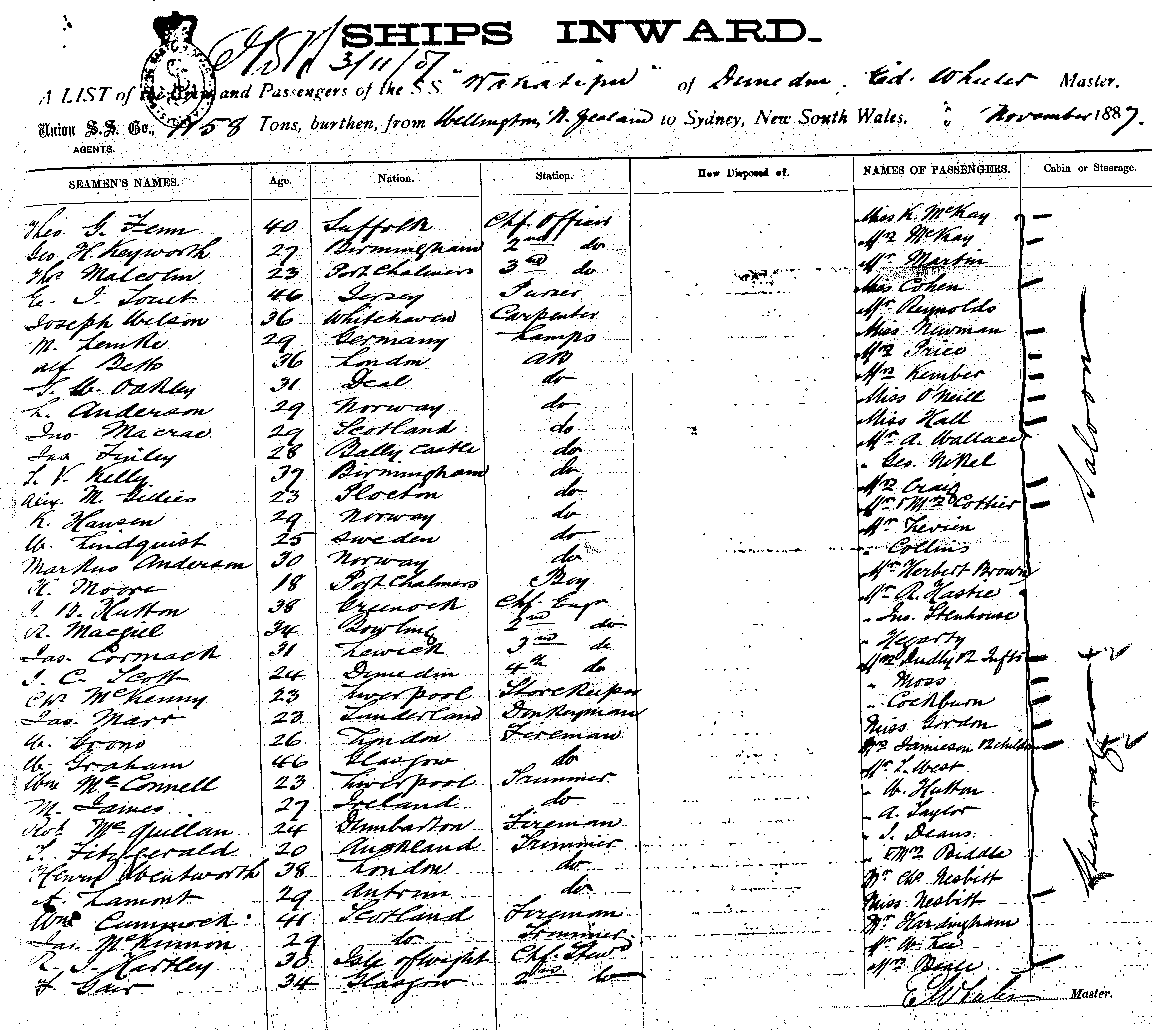 SHIPS INWARD.
3/11/87
A LIST of the Crew and Passengers of the S.S. "Wakatipu" of Dunedin, Ed. Wheeler Master.
Union S.S. Co., 1158 Tons, burthen, from Wellington, N. Zealand to Sydney, New South Wales. November 1887.
AGENTS.
SEAMEN'S NAMES. Age. Nation. Station. How Disposed of. NAMES OF PASSENGERS. Cabin or Steerage.
Thos G. Fenn 40 Suffolk Chf. Officer Miss K. McKay
Geo H. Keyworth 27 Birmingham 2nd do Mrs McKay
Thos Malcolm 23 Port Chalmers 3rd do Mr Martin
46 Jersey Purser Miss Cohen
Joseph Wilson 36 Whitehaven Carpenter Mr Reynolds
M. Lemke 29 Germany Lamps Miss Newman
Alf Beth 36 London AB Mrs Price
Oakley 31 Deal do Mrs Kember
L. Anderson 29 Norway do Miss O'Neill
Jno Macrae 29 Scotland do Miss Hall
Jas Finley 28 Bally Castle do Mr A. Wallace
Kelly 37 Birmingham do " Geo. Nikel
Alex. M. Gidies 23 Plocton do Mrs Craig
K. Hansen 29 Norway do Mr & Mrs Cottier
W. Lindquist 25 Sweden do Mr Levien
Markus Anderson 30 Norway do " Collins
H. Moore 18 Port Chalmers Boy Mr Herbert Brown
Hutton 38 Greenock Chf. Engr Mr R. Hastie
R. Macgill 34 Bowling 2nd do " Jno. Stenhouse
Jas. Cormack 31 Lewick 3rd do " Hegarty
J. C. Scott 24 Dunedin 4th do Mrs Dudly & 2 Infts
Chs McKenny 23 Liverpool Storekeeper " Moss
Jas. Marr 23 Sunderland Donkeyman " Cockburn
W. Grono 26 London Fireman Miss Gordon
W. Graham 46 Glasgow do Mrs Jamieson & 2 children
Wm McConnell 23 Liverpool Trimmer Mr L. West
M. James 27 Ireland do " W. Hutton
Rot McQuillan 24 Dumbarton Fireman " A. Taylor
T. Fitzgerald 20 Auckland Trimmer " J. Deans
Henry Wentworth 38 London do " & Mrs Biddle
A. Lamont 29 Antrim do Mr Chs Nesbitt
Wm Cummock 41 Scotland Fireman Miss Nesbitt
Jas. McKinnon 29 do Trimmer Mr Hardingham
R. J. Hartley 38 Isle of wight Chf. Stewd Mr W. Lee
F. Gair 34 Glasgow 2nd do Mrs Beale
Saloon
Steerage
E Wheeler Master.